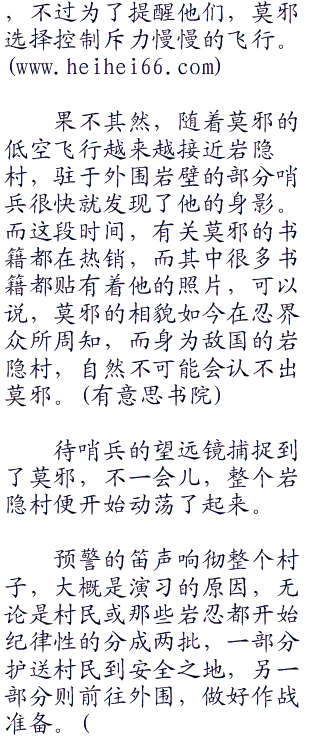 ，不过为了提醒他们，莫邪
选择控制斥力慢慢的飞行。
(www.heihei66.com)
果不其然，随着莫邪的
低空飞行越来越接近岩隐
村，驻于外围岩壁的部分哨
兵很快就发现了他的身影。
而这段时间，有关莫邪的书
籍都在热销，而其中很多书
籍都贴有着他的照片，可以
说，莫邪的相貌如今在忍界
众所周知，而身为敌国的岩
隐村，自然不可能会认不出
莫邪。(有意思书院)
待哨兵的望远镜捕捉到
了莫邪，不一会儿，整个岩
隐村便开始动荡了起来。
预警的笛声响彻整个村
子，大概是演习的原因，无
论是村民或那些岩忍都开始
纪律性的分成两批，一部分
护送村民到安全之地，另一
部分则前往外围，做好作战
准备。(